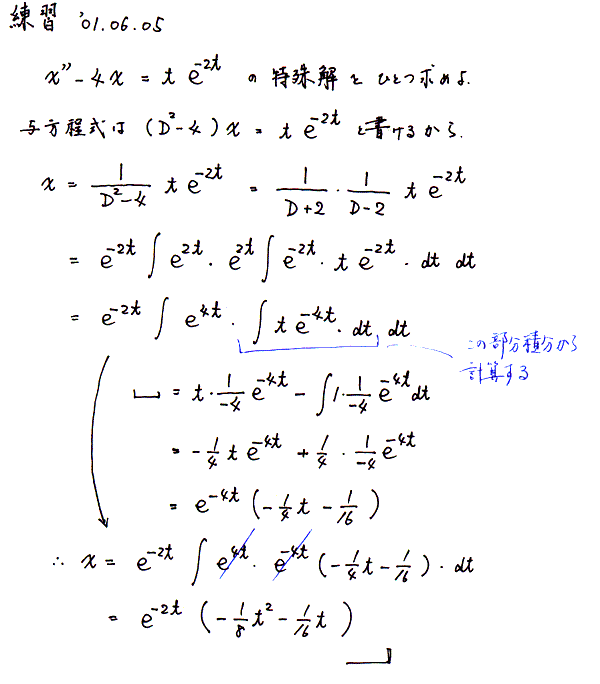 練習 '01.06.05
x'' - 4x = t e^{-2t} の特殊解をひとつ求めよ.
与方程式は (D²-4)x = t e^{-2t} と書けるから.
x = \frac{1}{D²-4} t e^{-2t} = \frac{1}{D+2} · \frac{1}{D-2} t e^{-2t}
= e^{-2t} ∫ e^{2t} · e^{2t} ∫ e^{-2t} · t e^{-2t} · dt dt
= e^{-2t} ∫ e^{4t} · ∫ t e^{-4t} · dt dt
この部分積分から
計算する
= t · \frac{1}{-4} e^{-4t} - ∫ 1 · \frac{1}{-4} e^{-4t} dt
= -\frac{1}{4} t e^{-4t} + \frac{1}{4} · \frac{1}{-4} e^{-4t}
= e^{-4t} (-\frac{1}{4} t - \frac{1}{16})
∴ x = e^{-2t} ∫ e^{4t} · e^{-4t} (-\frac{1}{4} t - \frac{1}{16}) · dt
= e^{-2t} (-\frac{1}{8} t² - \frac{1}{16} t)